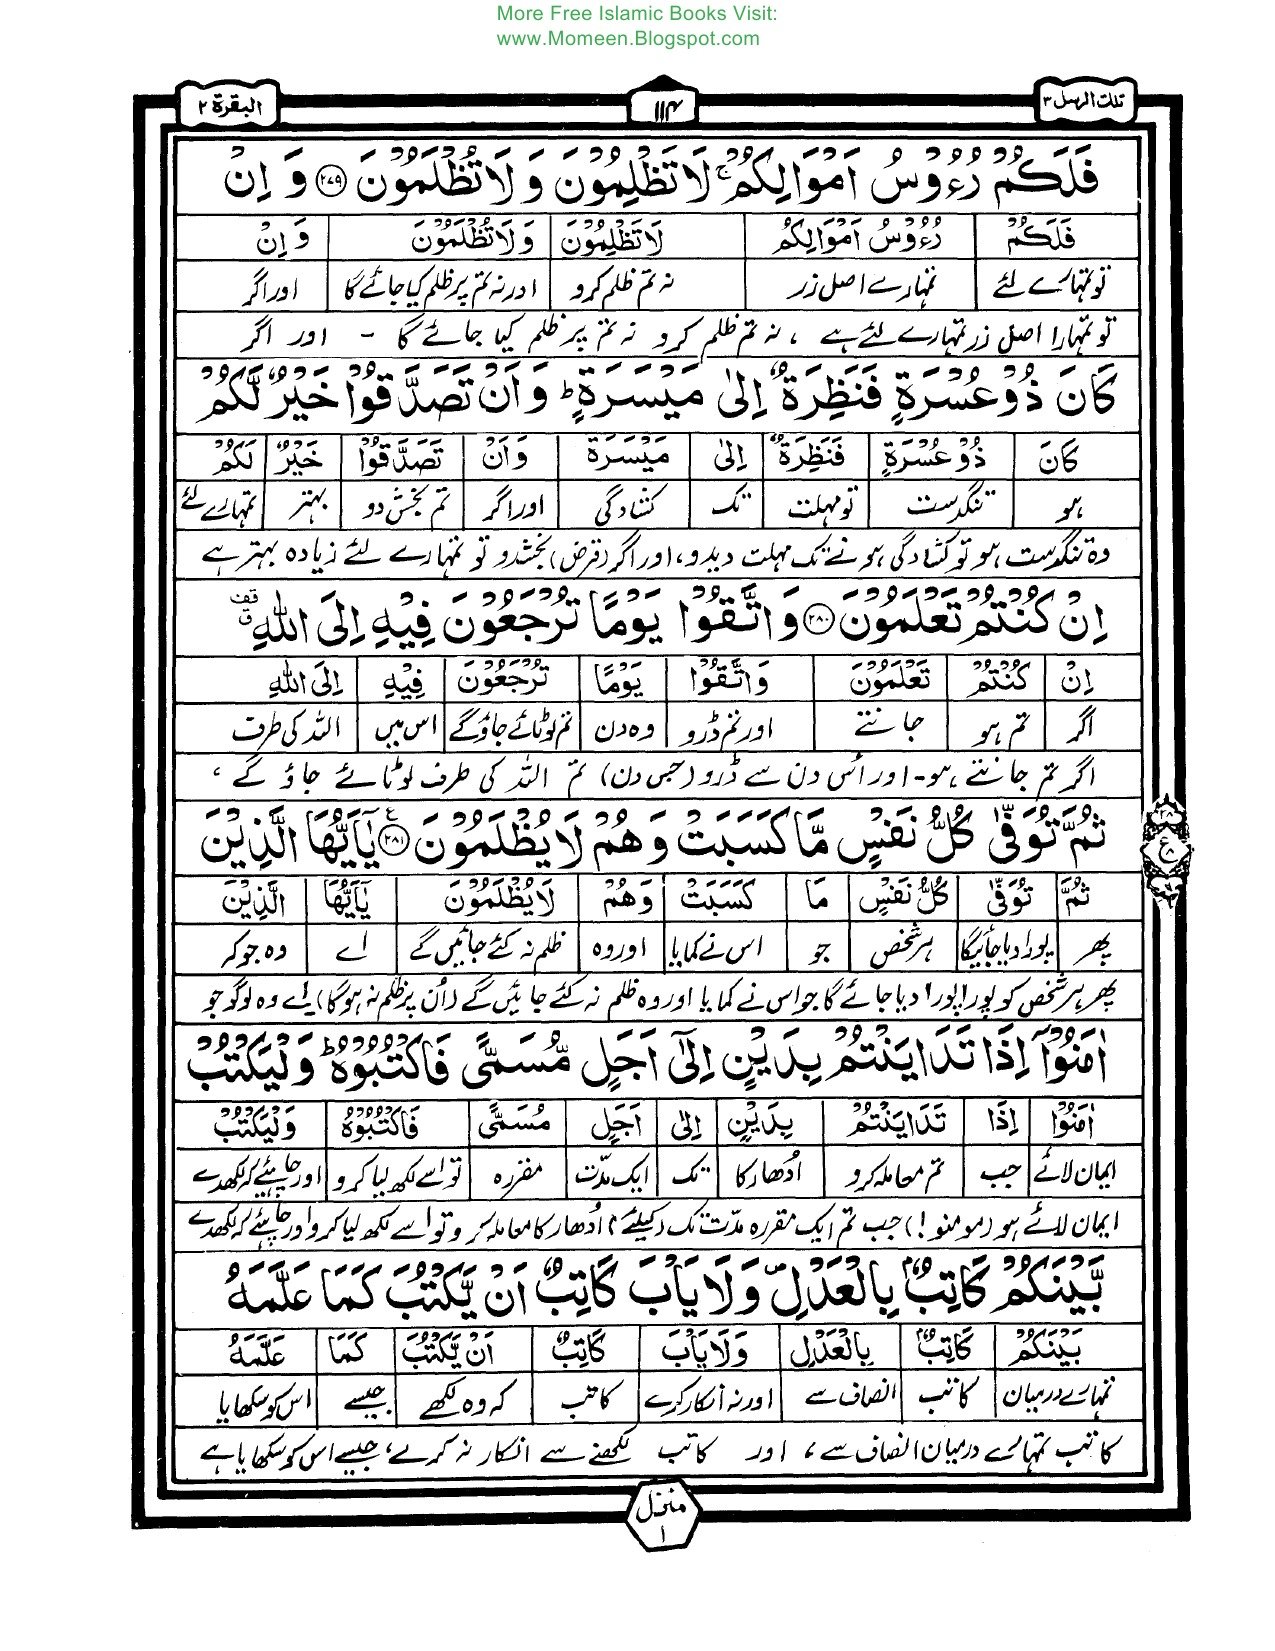 More Free Islamic Books Visit:
www.Momeen.Blogspot.com
تلك الرسل ٣ ١١٤ البقرة ٢
فَلَكُمْ رُءُوْسُ اَمْوَالِكُمْ ۚ لَا تَظْلِمُوْنَ وَ لَا تُظْلَمُوْنَ ﴿۲۷۹﴾ وَ اِنْ
فَلَكُمْ رُءُوْسُ اَمْوَالِكُمْ لَا تَظْلِمُوْنَ وَ لَا تُظْلَمُوْنَ وَ اِنْ
تو تمہارے لئے تمہارے اصل زر نہ تم ظلم کرو اور نہ تم پر ظلم کیا جائے گا اور اگر
تو تمہارا اصل زر تمہارے لئے ہے ، نہ تم ظلم کرو نہ تم پر ظلم کیا جائے گا - اور اگر
كَانَ ذُوْ عُسْرَةٍ فَنَظِرَةٌ اِلٰى مَيْسَرَةٍ ؕ وَ اَنْ تَصَدَّقُوْا خَيْرٌ لَّكُمْ
كَانَ ذُوْ عُسْرَةٍ فَنَظِرَةٌ اِلٰى مَيْسَرَةٍ وَ اَنْ تَصَدَّقُوْا خَيْرٌ لَكُمْ
ہو تنگدست تو مہلت تک کشادگی اور اگر تم بخش دو بہتر تمہارے لئے
وہ تنگدست ہو تو کشادگی ہونے تک مہلت دیدو، اور اگر (قرض) بخشدو تو تمہارے لئے زیادہ بہتر ہے
اِنْ كُنْتُمْ تَعْلَمُوْنَ ﴿۲۸۰﴾ وَ اتَّقُوْا يَوْمًا تُرْجَعُوْنَ فِيْهِ اِلَى اللّٰهِ
اِنْ كُنْتُمْ تَعْلَمُوْنَ وَ اتَّقُوْا يَوْمًا تُرْجَعُوْنَ فِيْهِ اِلَى اللّٰهِ
اگر تم ہو جانتے اور تم ڈرو وہ دن تم لوٹائے جاؤ گے اس میں اللہ کی طرف
اگر تم جانتے ہو- اور اُس دن سے ڈرو (جس دن) تم اللہ کی طرف لوٹائے جاؤ گے ،
ثُمَّ تُوَفّٰى كُلُّ نَفْسٍ مَّا كَسَبَتْ وَ هُمْ لَا يُظْلَمُوْنَ ﴿۲۸۱﴾ يٰۤاَيُّهَا الَّذِيْنَ
ثُمَّ تُوَفّٰى كُلُّ نَفْسٍ مَا كَسَبَتْ وَ هُمْ لَا يُظْلَمُوْنَ يٰۤاَيُّهَا الَّذِيْنَ
پھر پورا دیا جائیگا ہر شخص جو اس نے کمایا اور وہ ظلم نہ کئے جائیں گے اے وہ جو کہ
پھر ہر شخص کو پورا پورا دیا جائے گا جو اس نے کمایا اور وہ ظلم نہ کئے جائیں گے (اُن پر ظلم نہ ہوگا) اے وہ لوگو جو
اٰمَنُوْۤا اِذَا تَدَايَنْتُمْ بِدَيْنٍ اِلٰۤى اَجَلٍ مُّسَمًّى فَاكْتُبُوْهُ ؕ وَلْيَكْتُبْ
اٰمَنُوْۤا اِذَا تَدَايَنْتُمْ بِدَيْنٍ اِلٰى اَجَلٍ مُسَمًّى فَاكْتُبُوْهُ وَلْيَكْتُبْ
ایمان لائے جب تم معاملہ کرو اُدھار کا تک ایک مدّت مقررہ تو اسے لکھ لیا کرو اور چاہئیے کہ لکھدے
ایمان لائے ہو (مومنو!) جب تم ایک مقررہ مدّت تک (کیلئے) اُدھار کا معاملہ کرو تو اسے لکھ لیا کرو اور چاہئے کہ لکھدے
بَّيْنَكُمْ كَاتِبٌۢ بِالْعَدْلِ ۪ وَ لَا يَاْبَ كَاتِبٌ اَنْ يَّكْتُبَ كَمَا عَلَّمَهُ
بَيْنَكُمْ كَاتِبٌۢ بِالْعَدْلِ وَ لَا يَاْبَ كَاتِبٌ اَنْ يَّكْتُبَ كَمَا عَلَّمَهُ
تمہارے درمیان کاتب انصاف سے اور نہ انکار کرے کاتب کہ وہ لکھے جیسے اس کو سکھایا
کاتب تمہارے درمیان انصاف سے ، اور کاتب لکھنے سے انکار نہ کرے ، جیسے اس کو سکھایا ہے
منزل
١